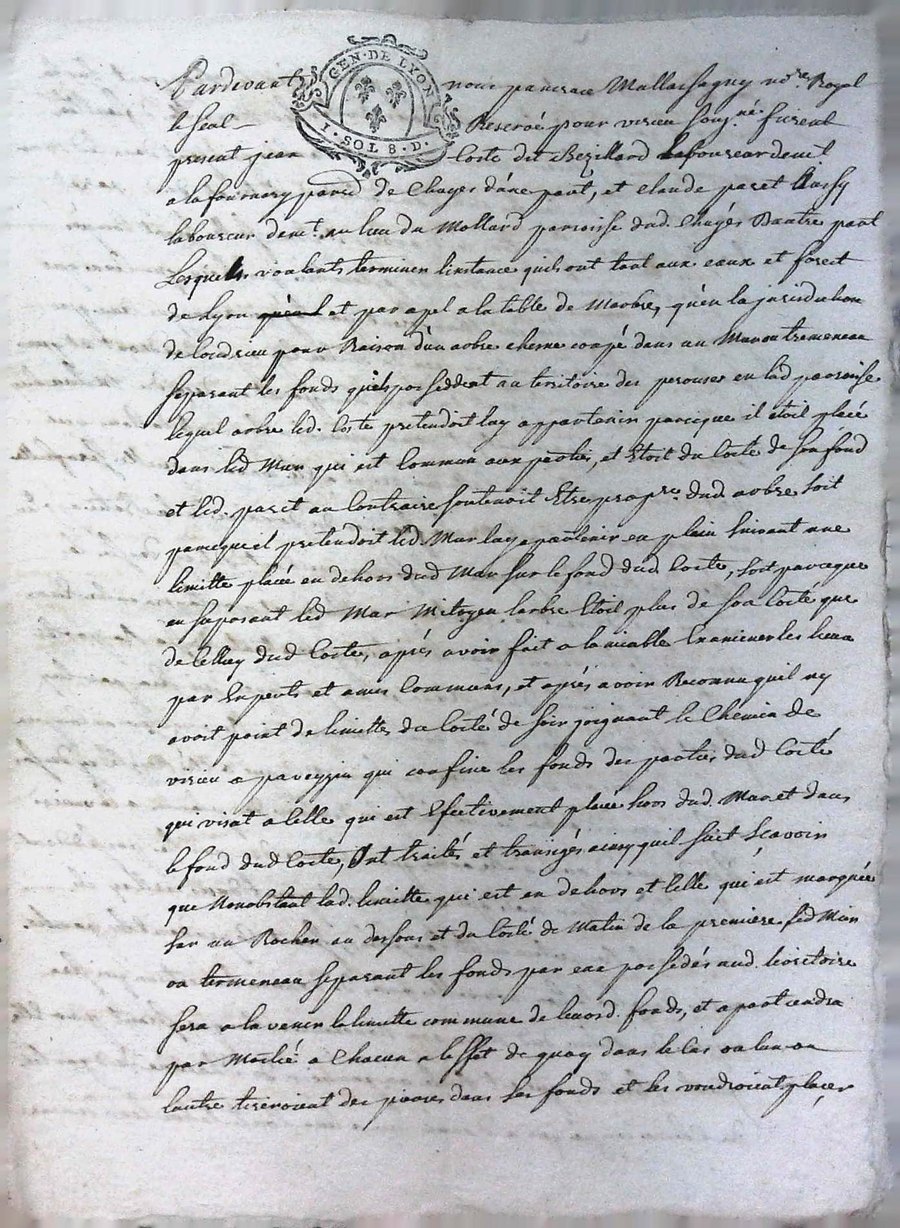 GEN · DE LYON
1 · SOL 8 · D ·
Pardevant nous pancrace Mallassagny no.re Royal
le seal Reservé pour virieu soug.né furent
present jean Coste dit Bezillard Laboureur demt.
a la fournary paroisse de Chuyes d'une part, et claude paret
laboureur demt. au lieu du Mollard paroisse dud. Chuyés Dautre part
Lesquels voulants terminer linstance quils ont tant aux eaux et forest
de Lyon et par apel a la table de Marbre, qu'en la jurisdiction
de pour Raison d'un arbre chesne coupé dans un Mur ou tremeneau
séparant les fonds quils posseddent au territoire des perouses en lad. paroisse
lequel arbre led. Coste pretendoit luy appartenir parceque il étoit placé
dans led. Mur qui est Commun aux parties, et Etoit du Costé de son fond
et led. paret au Contraire soutenoit Etre propre. dud. arbre soit
parcequil pretendoit led. Mur luy apartenir en plain suivant une
limitte placée en dehors dud. Mur sur le fond dud. Coste, soit parceque
en suposant led. Mur Mitoyen larbre Etoit plus de son Costé que
de Celluy dud. Coste, après avoir fait a lamiable Examiner les lieux
par Experts et amis Communs, et après avoir Reconnu quil ny
avoit point de limittes du Costé de soir joignant le Chemin de
virieu a paveyzin qui confine les fonds des parties dud. Costé
qui visat a Celle qui est Efectivement placée hors dud. Mur et dans
le fond dud. Coste, Ont traités et transigés ainsy quil suit Scavoir
que Nonobstant lad. limitte qui est en dehors et Celle qui est marquée
sur un Rocher au dessous et du Costé de Matin de la premiere, led. Mur
ou tremeneau séparant les fonds par eux possédés aud. territoire
sera a lavenir la limitte commune de leursd. fonds, et apartiendra
par Moitié a Chacun a leffet de quoy dans le Cas ou lun ou
lautre tireroient des pierres dans les fonds et les voudroient placer